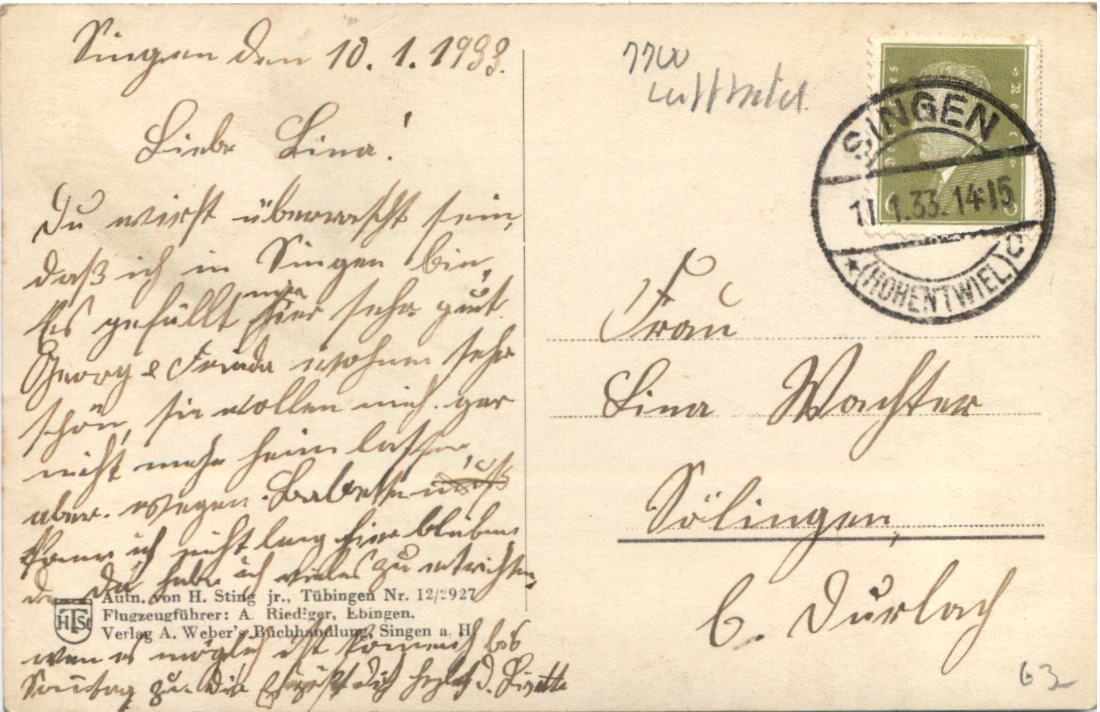 Singen den 10.1.1933.
Liebe Lina!
Du wirst überrascht sein,
daß ich in Singen bin,
Es gefällt mir hier sehr gut.
Georg & Frieda wohnen sehr
schön, sie wollen mich gar
nicht mehr heim lassen
aber wegen Babette
kann ich nicht lang hier bleiben
da habe ich vieles zu
wen es möglich ist komme ich bis
Sonntag zu Dir d. Lisette
Aufn. von H. Sting jr., Tübingen Nr. 12/2927
Flugzeugführer: A. Riediger, Ebingen.
Verlag A. Weber's Buchhandlung, Singen a. H.
HSt
7700
Luftbild
SINGEN
11.1.33.14-15
★(HOHENTWIEL) C
Frau
Lina Wachter
Söllingen,
b. Durlach
63